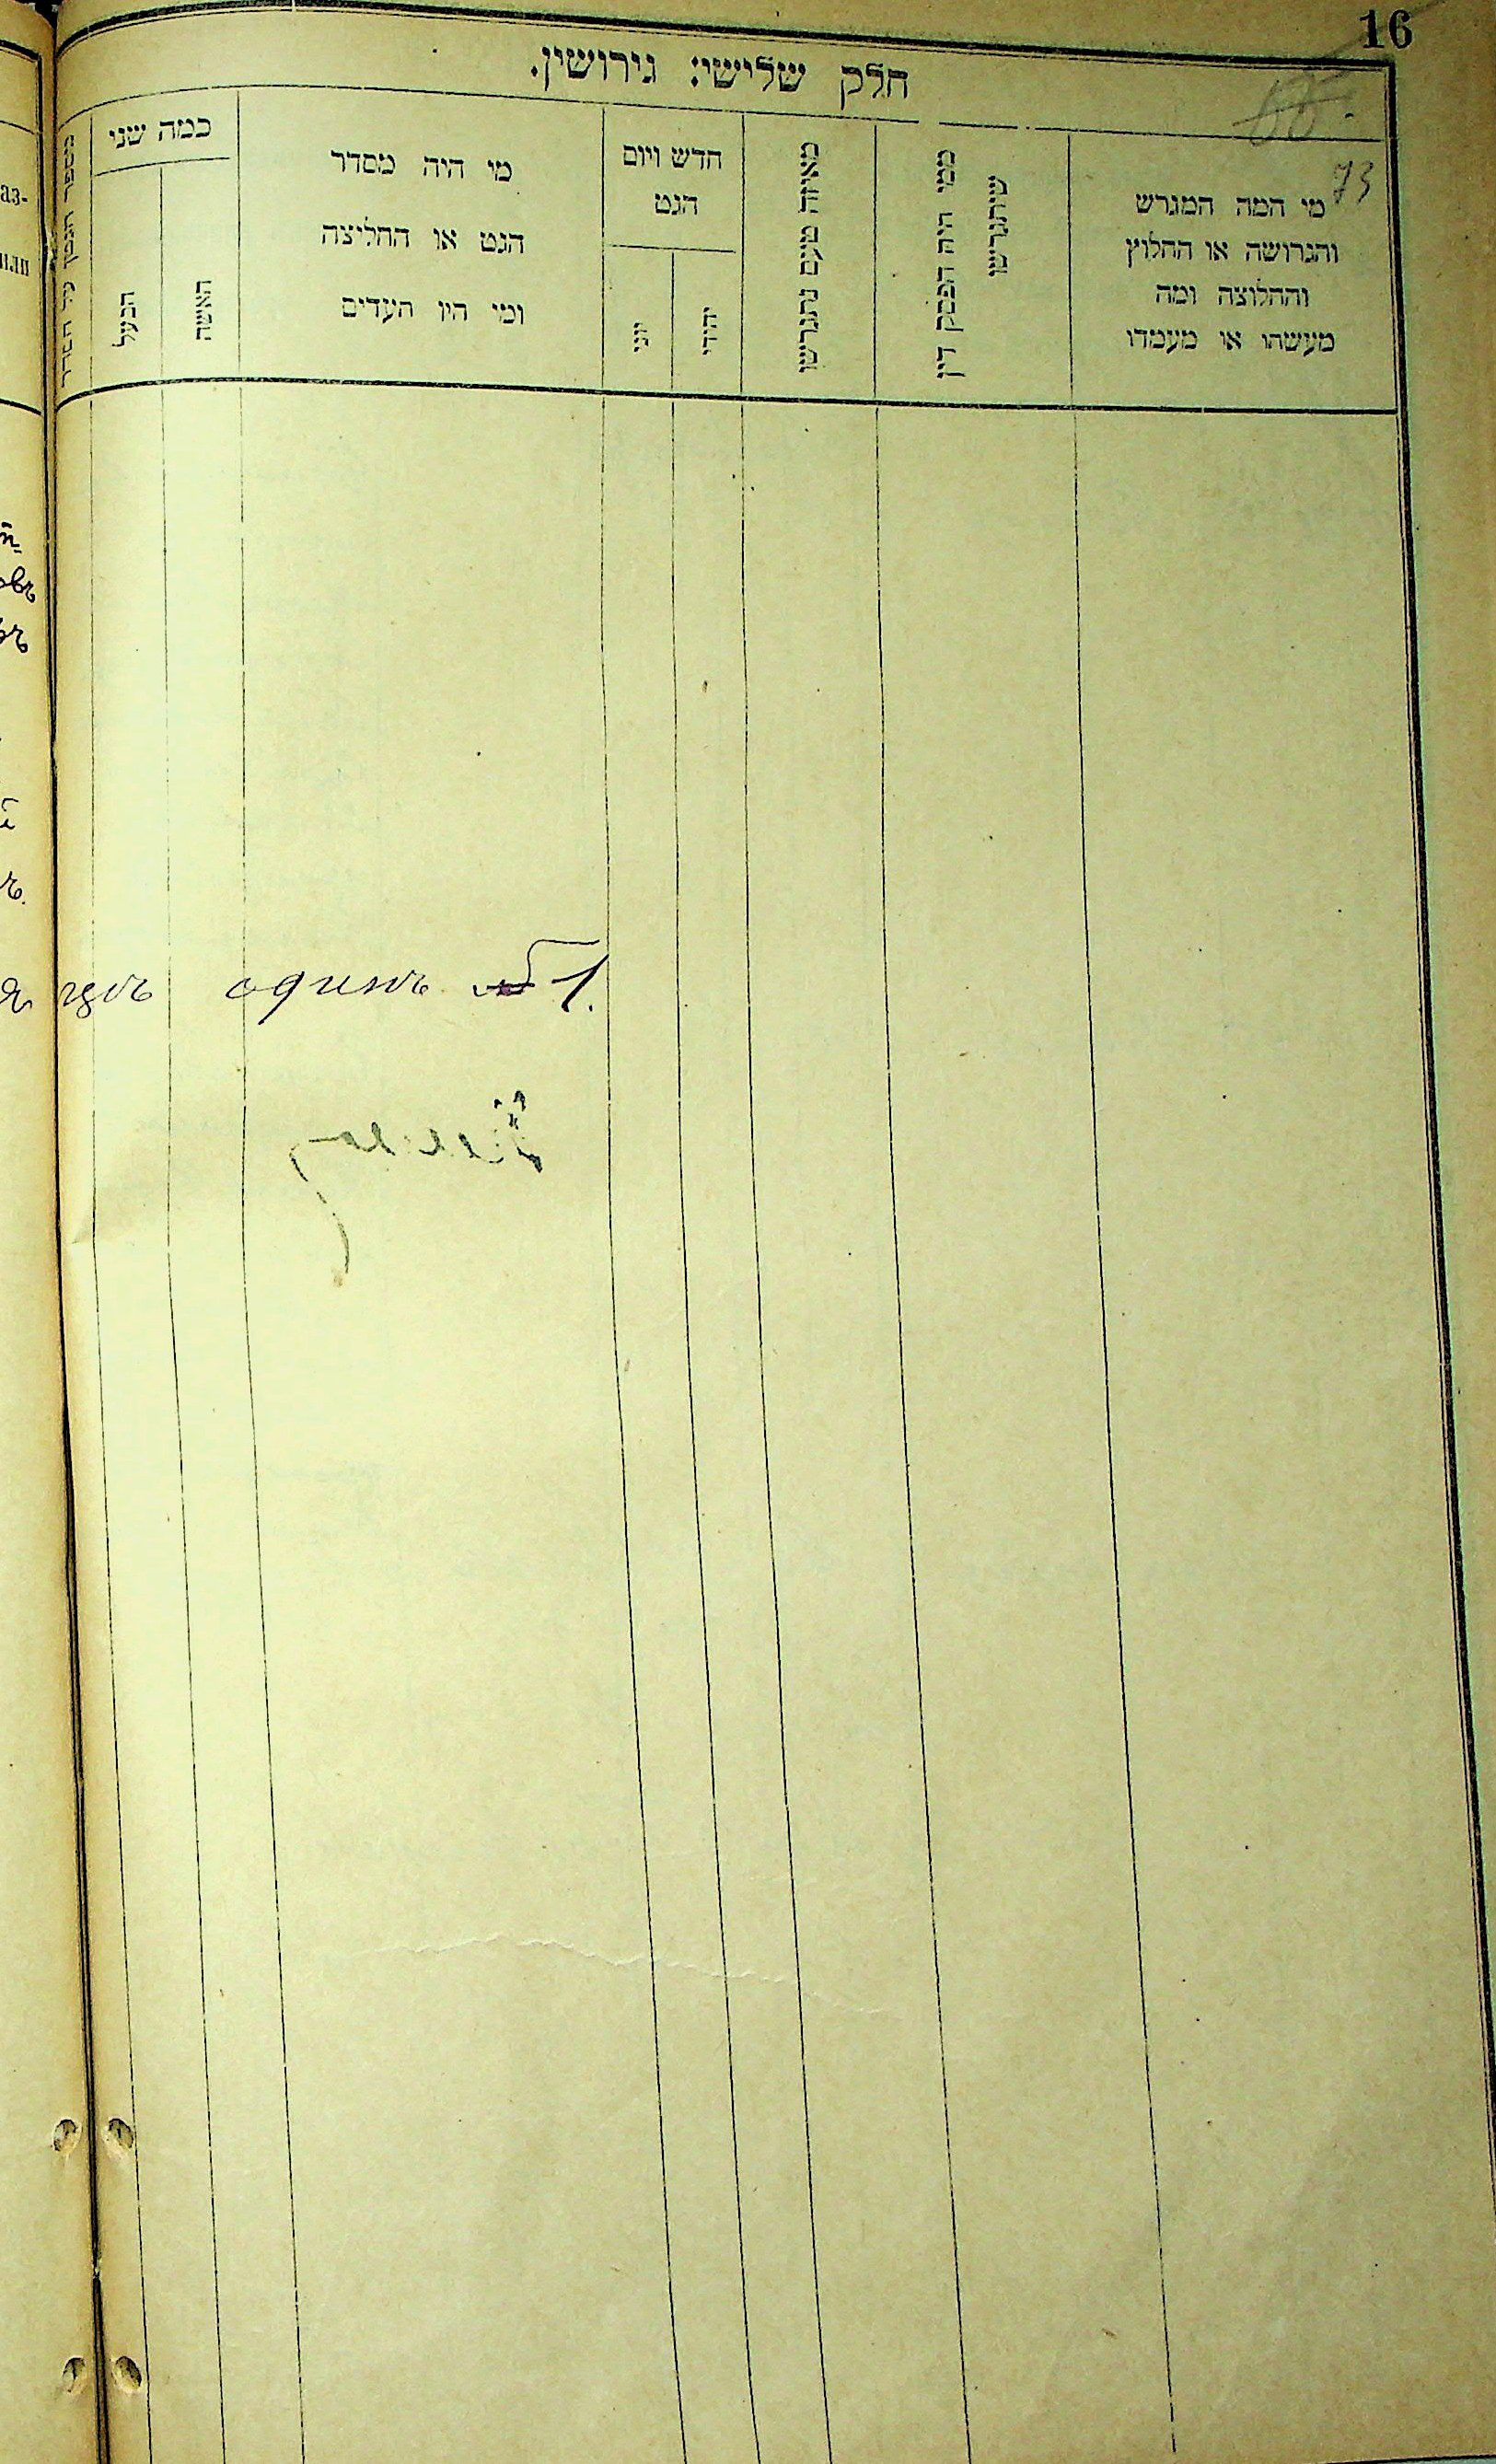 16
חלק שלישי: גירושין.
73
מי המה המגרש
והגרושה או החלוץ
והחלוצה ומה
מעשהו או מעמדו
ממי היה הפסק דין
שיתגרשו
מאיזה טעם נתגרשו
חדש ויום
הגט
יהודי
יוני
מי היה מסדר
הגט או החליצה
ומי היו העדים
כמה שני
האשה
הבעל
одинъ № 1.